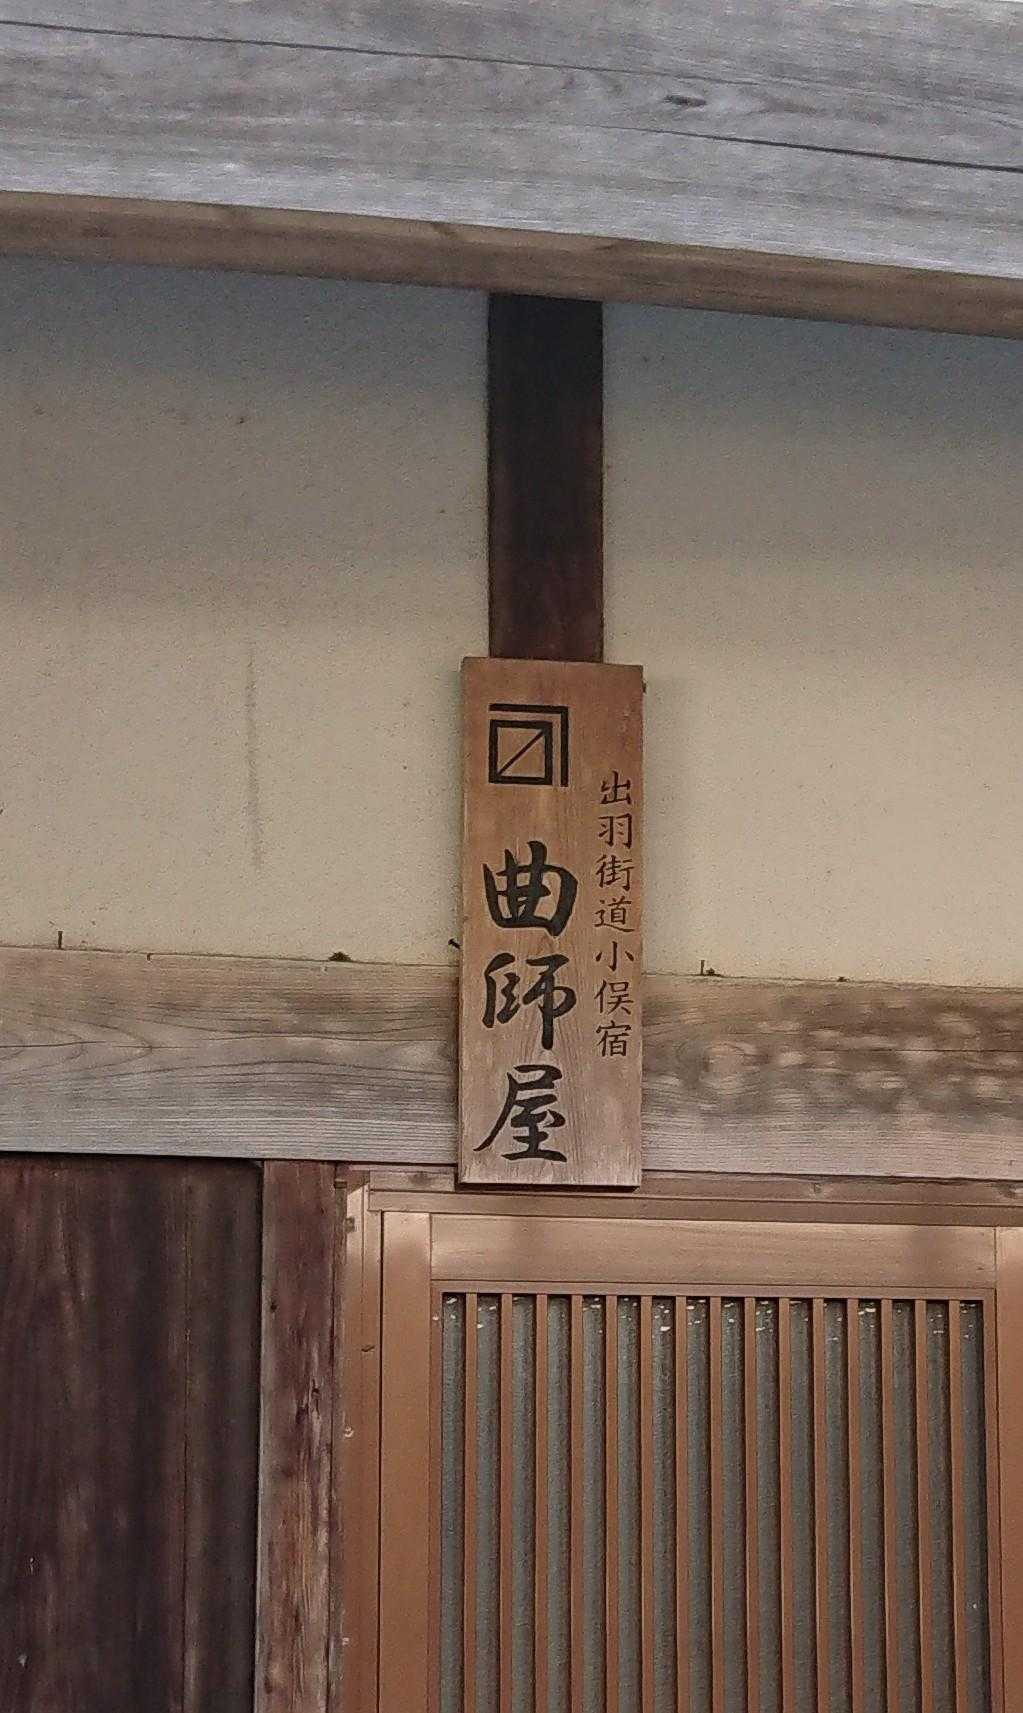 出羽街道小俣宿
曲師屋